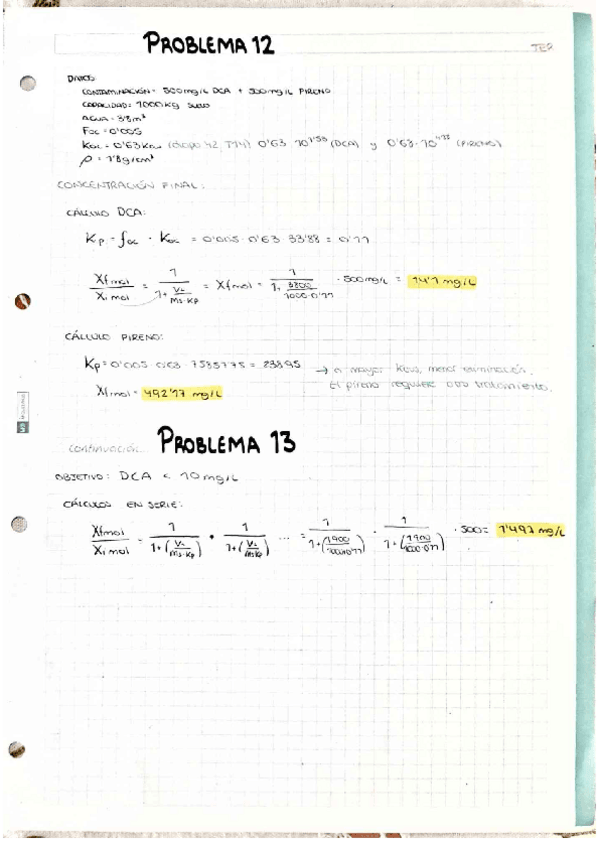 PROBLEMA 12
DATOS
CONTAMINACIÓN= 500mg/L DCA + 500mg/L PIRENO
CAPACIDAD= 1000Kg SUELO
AGUA= 3'8m³
Foc= 0'005
Koc= 0'63Kow (diapo 42, T14) 0'63·10^1'53 (DCA) y 0'63·10^4'88 (PIRENO)
ρ= 1'8g/cm³
CONCENTRACIÓN FINAL:
CÁLCULO DCA:
Kp = foc · Koc = 0'005·0'63·33'88 = 0'11
Xfmol/Ximol = 1/(1+ VL/(Ms·Kp)) = Xfmol = 1/(1+ 3800/(1000·0'11)) · 500mg/L = 14'1 mg/L
CÁLCULO PIRENO:
Kp= 0'005·0'63·75857'75 = 238'95 → a mayor Kow, menor eliminación.
El pireno requiere otro tratamiento.
Xfmol= 492'17 mg/L
continuación... PROBLEMA 13
OBJETIVO: DCA < 10mg/L
CÁLCULOS EN SERIE:
Xfmol/Ximol = 1/(1+(VL/(Ms·Kp))) · 1/(1+(VL/(Ms·Kp))) ... = 1/(1+(1900/(1000·0'11))) · 1/(1+(1900/(1000·0'11))) · 500= 1'497 mg/L